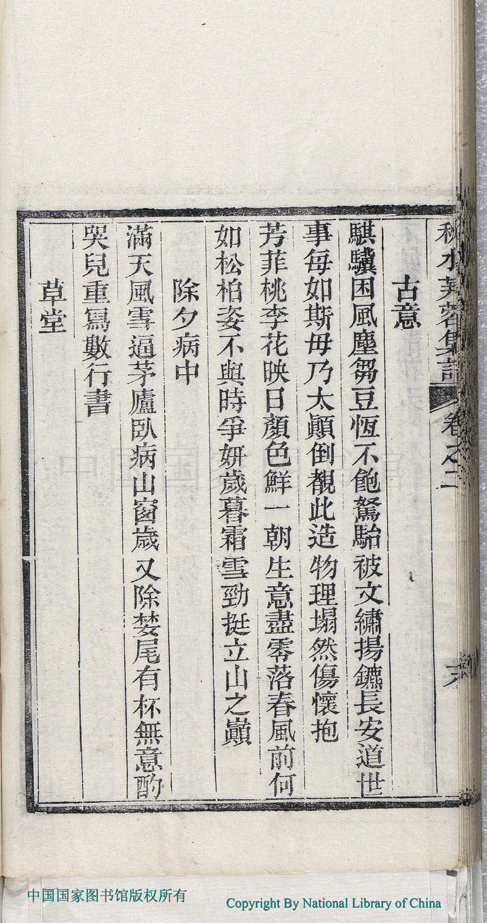 秋水芙蓉集詩 卷之二
古意
騏驥困風塵芻豆恆不飽駑駘被文繡揚鑣長安道世
事每如斯毋乃太顛倒覩此造物理塌然傷懷抱
芳菲桃李花映日顏色鮮一朝生意盡零落春風前何
如松柏姿不與時爭妍歲暮霜雪勁挺立山之巔
除夕病中
滿天風雪逼茅廬臥病山窗歲又除婪尾有杯無意酌
哭兒重寫數行書
草堂
中国国家图书馆版权所有
Copyright By National Library of China